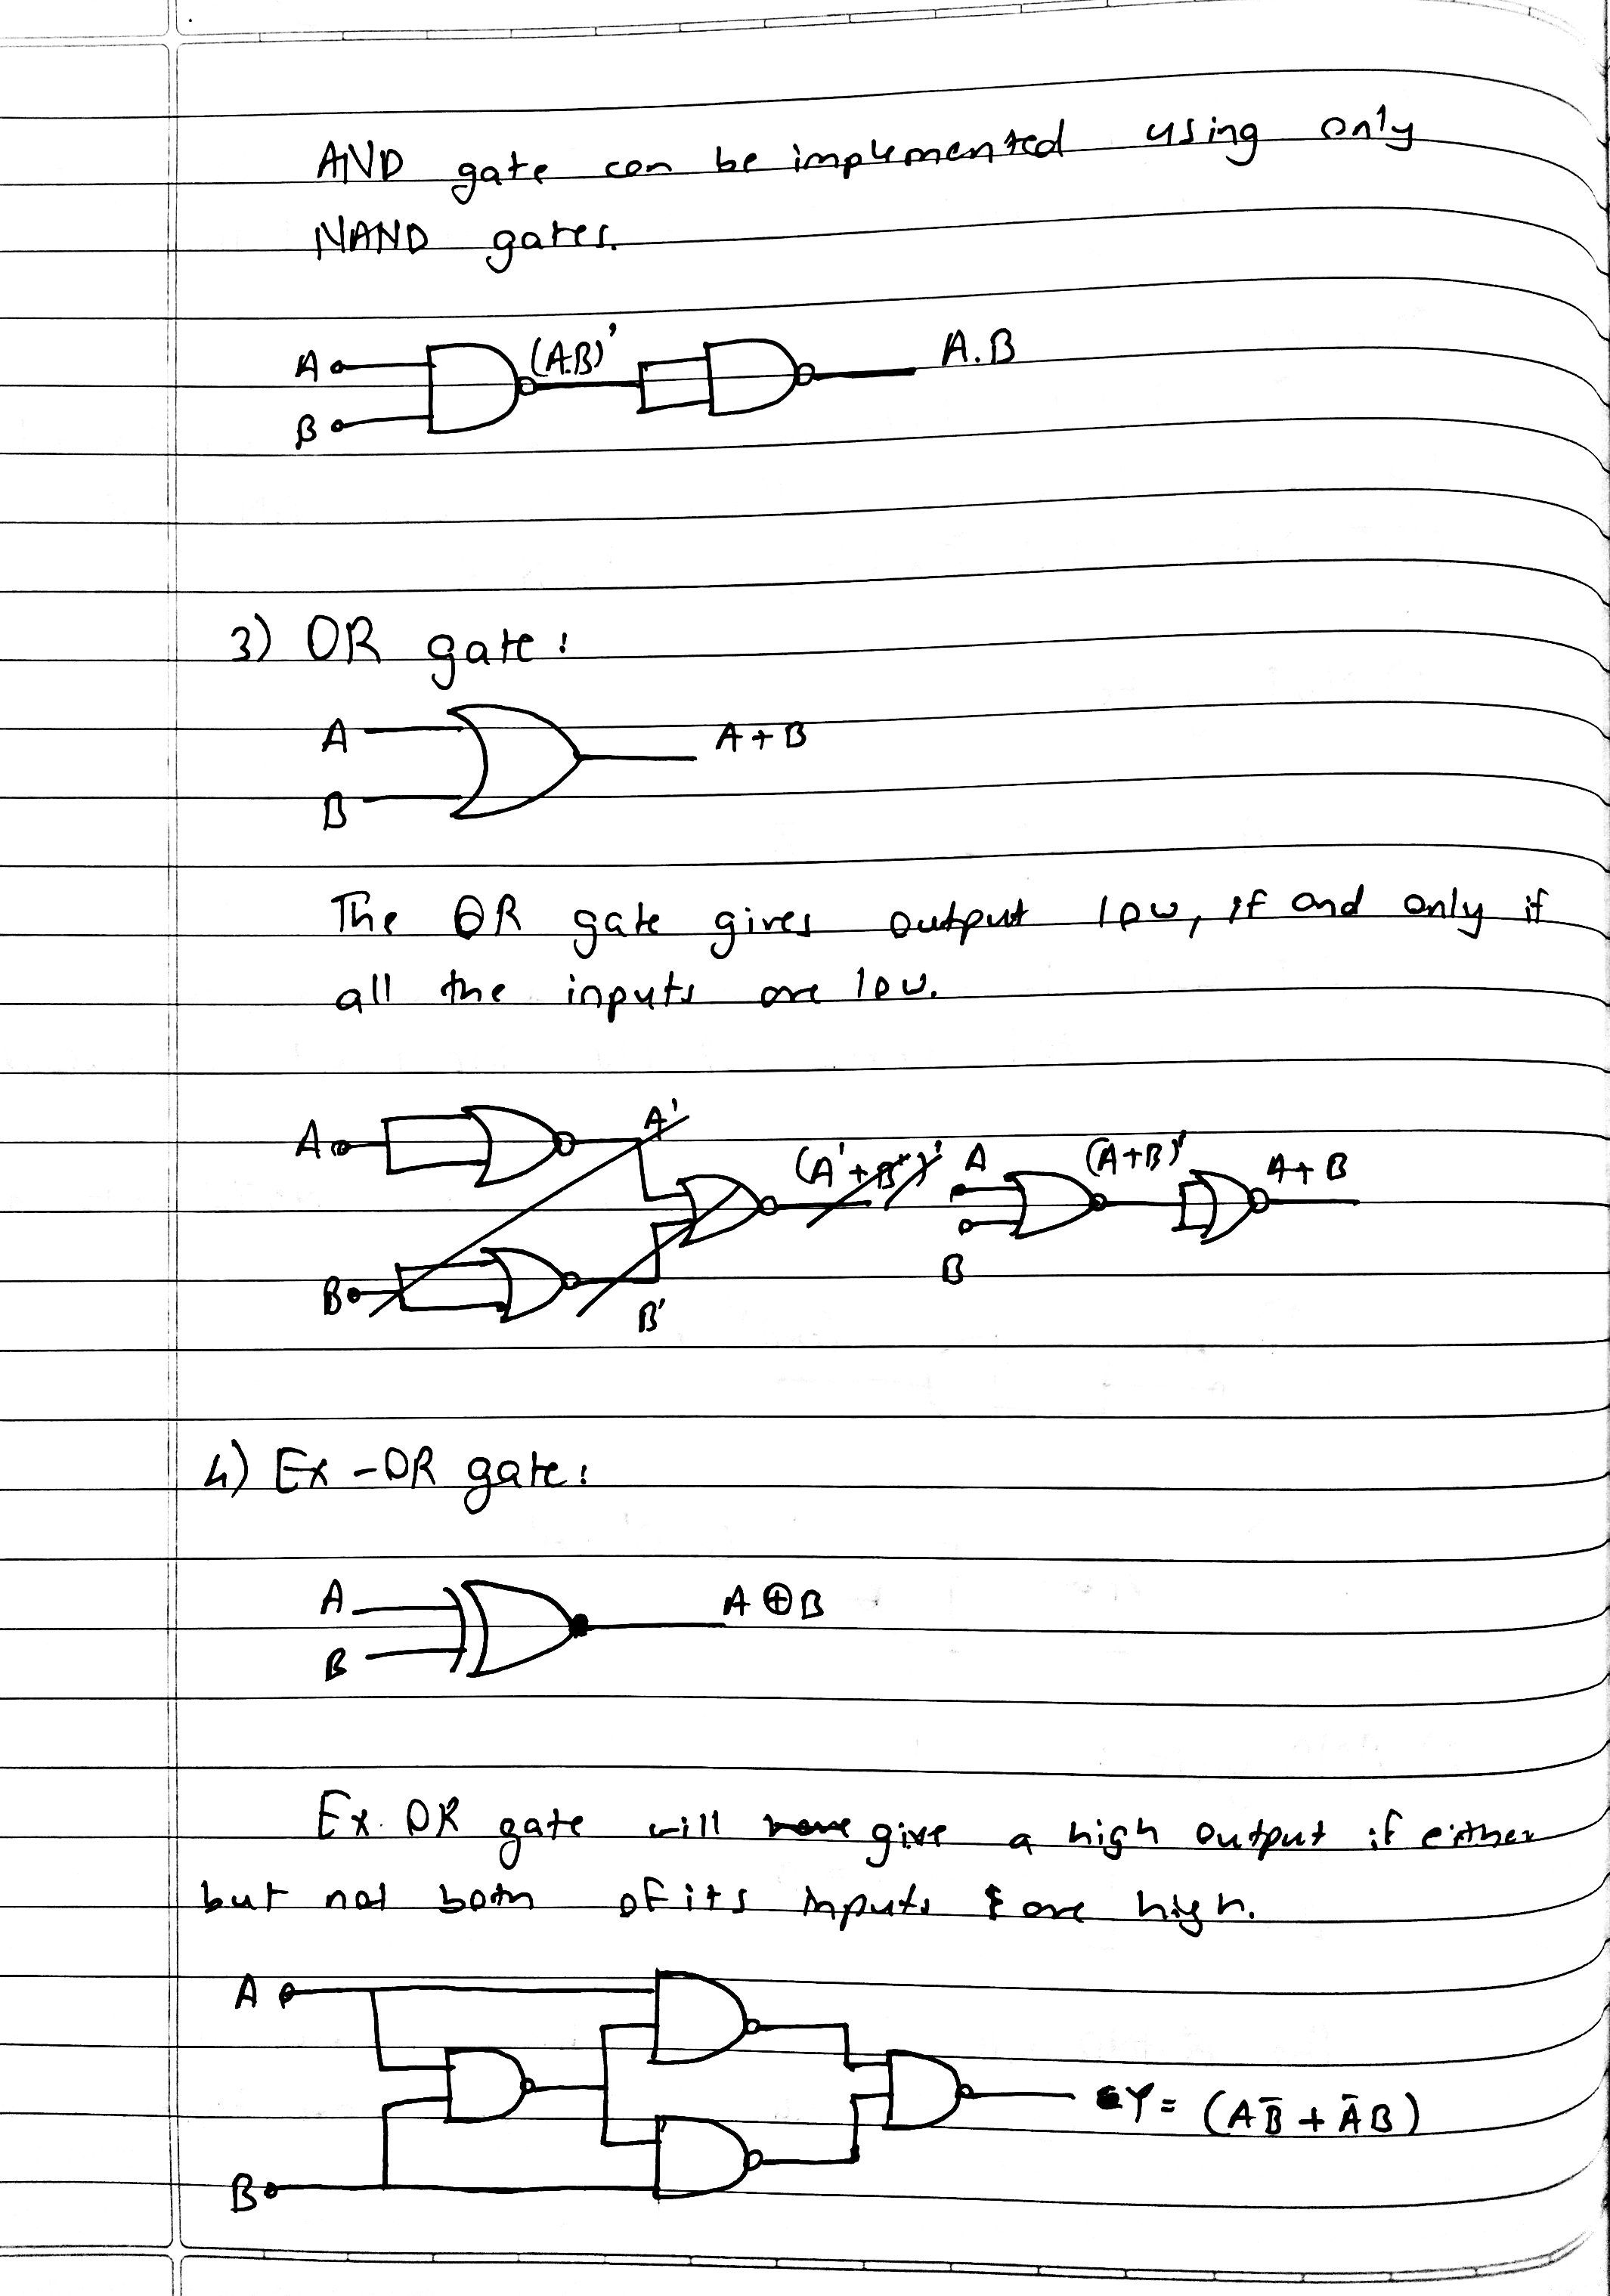 AND gate can be implemented using only
NAND gates.
A (A.B)' A.B
B
3) OR gate:
A A+B
B
The OR gate gives output low, if and only if
all the inputs are low.
A A' (A'+B')' A (A+B)' A+B
B B' B
4) Ex-OR gate:
A A⊕B
B
Ex. OR gate will have give a high output if either
but not both of its inputs are high.
A
Y= (AB̅ + A̅B)
B